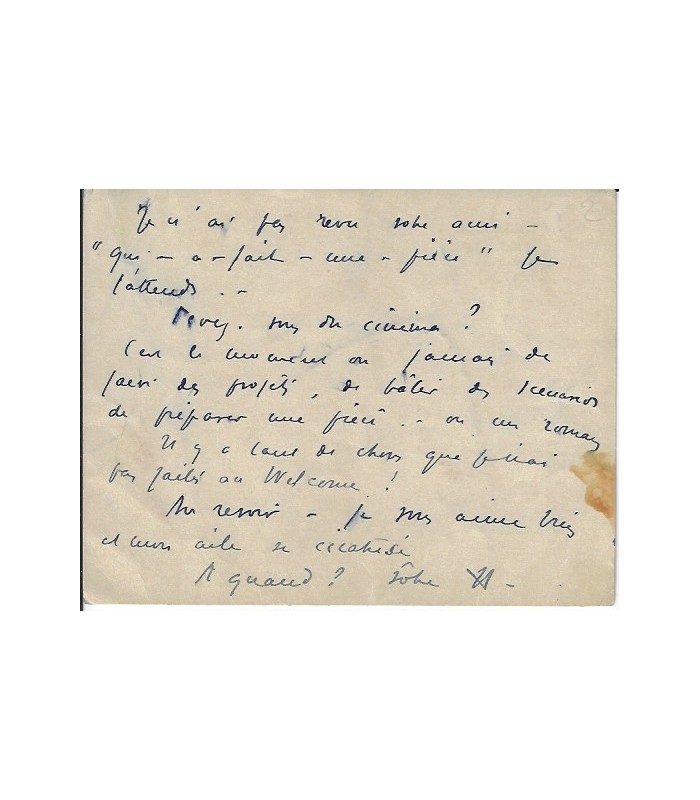 Je n'ai pas revu votre ami -
"qui - a - fait - une - pièce" Je
l'attends . -
Rêvez-vous du cinéma ?
C'est le moment ou jamais de
faire des projets, de bâtir des scenarios
de préparer une pièce . - ou un roman
Il y a tant de choses que je n'ai
pas faites au Welcome !
Au revoir - Je vous aime bien
et mon aile se cicatrise
A quand ? Votre
2